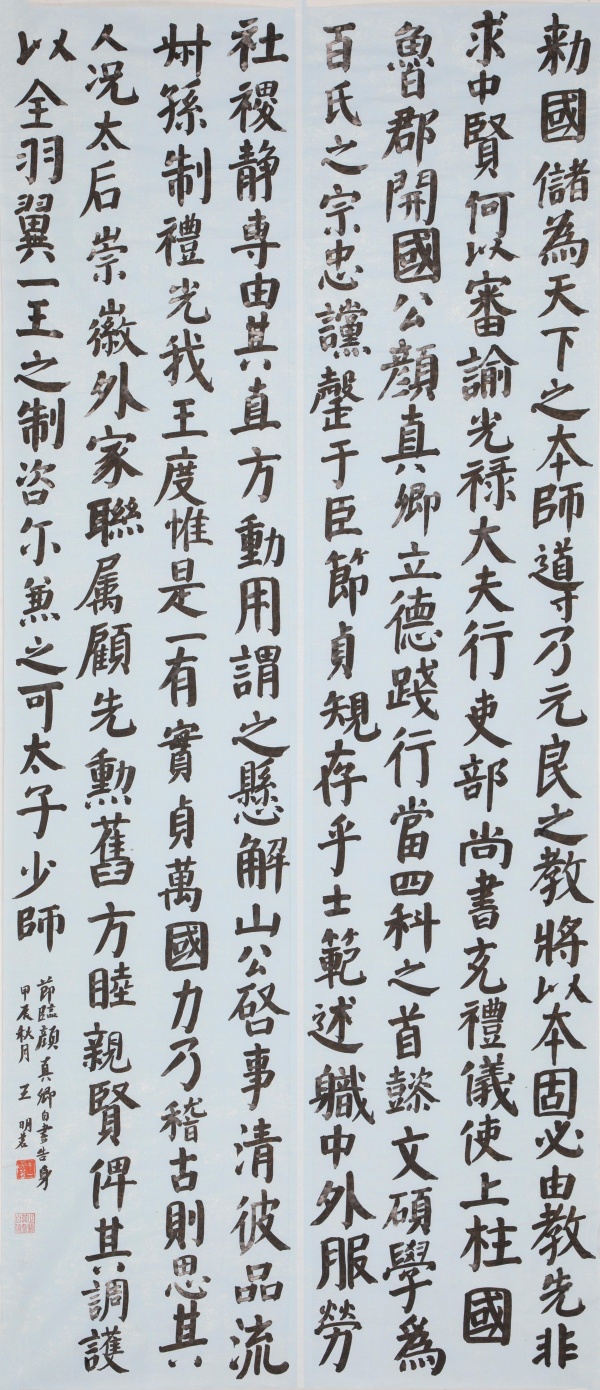 勑國儲為天下之本師導乃元良之教將以本固必由教先非
求中賢何以審諭光禄大夫行吏部尚書充禮儀使上柱國
魯郡開國公顔真卿立德踐行當四科之首懿文碩學為
百氏之宗忠讜罄于臣節貞規存乎士範述職中外服勞
社稷静專由其直方動用謂之懸解山公啓事清彼品流
叔孫制禮光我王度惟是一有實貞萬國力乃稽古則思其
人况太后崇徽外家聯属顧先勳舊方睦親賢俾其調護
以全羽翼一王之制咨尔兼之可太子少師
節臨顔真卿自書告身
甲辰秋月 王明